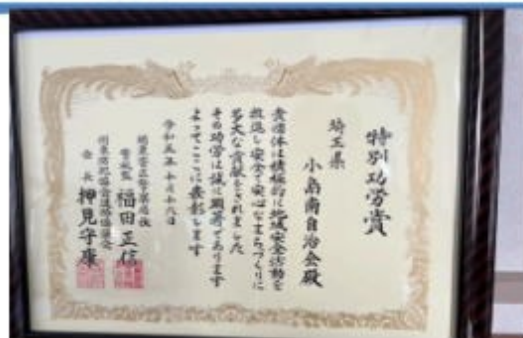 特別功労賞
埼玉県
小島南自治会殿
貴団体は積極的に地域安全活動を
推進し安全で安心なまちづくりに
多大な貢献をされました
その功労は誠に顕著であります
よってここに表彰します
令和五年十月十八日
関東管区警察局長
警視監 福田正信
関東防犯協会連絡協議会
会長 押見守康